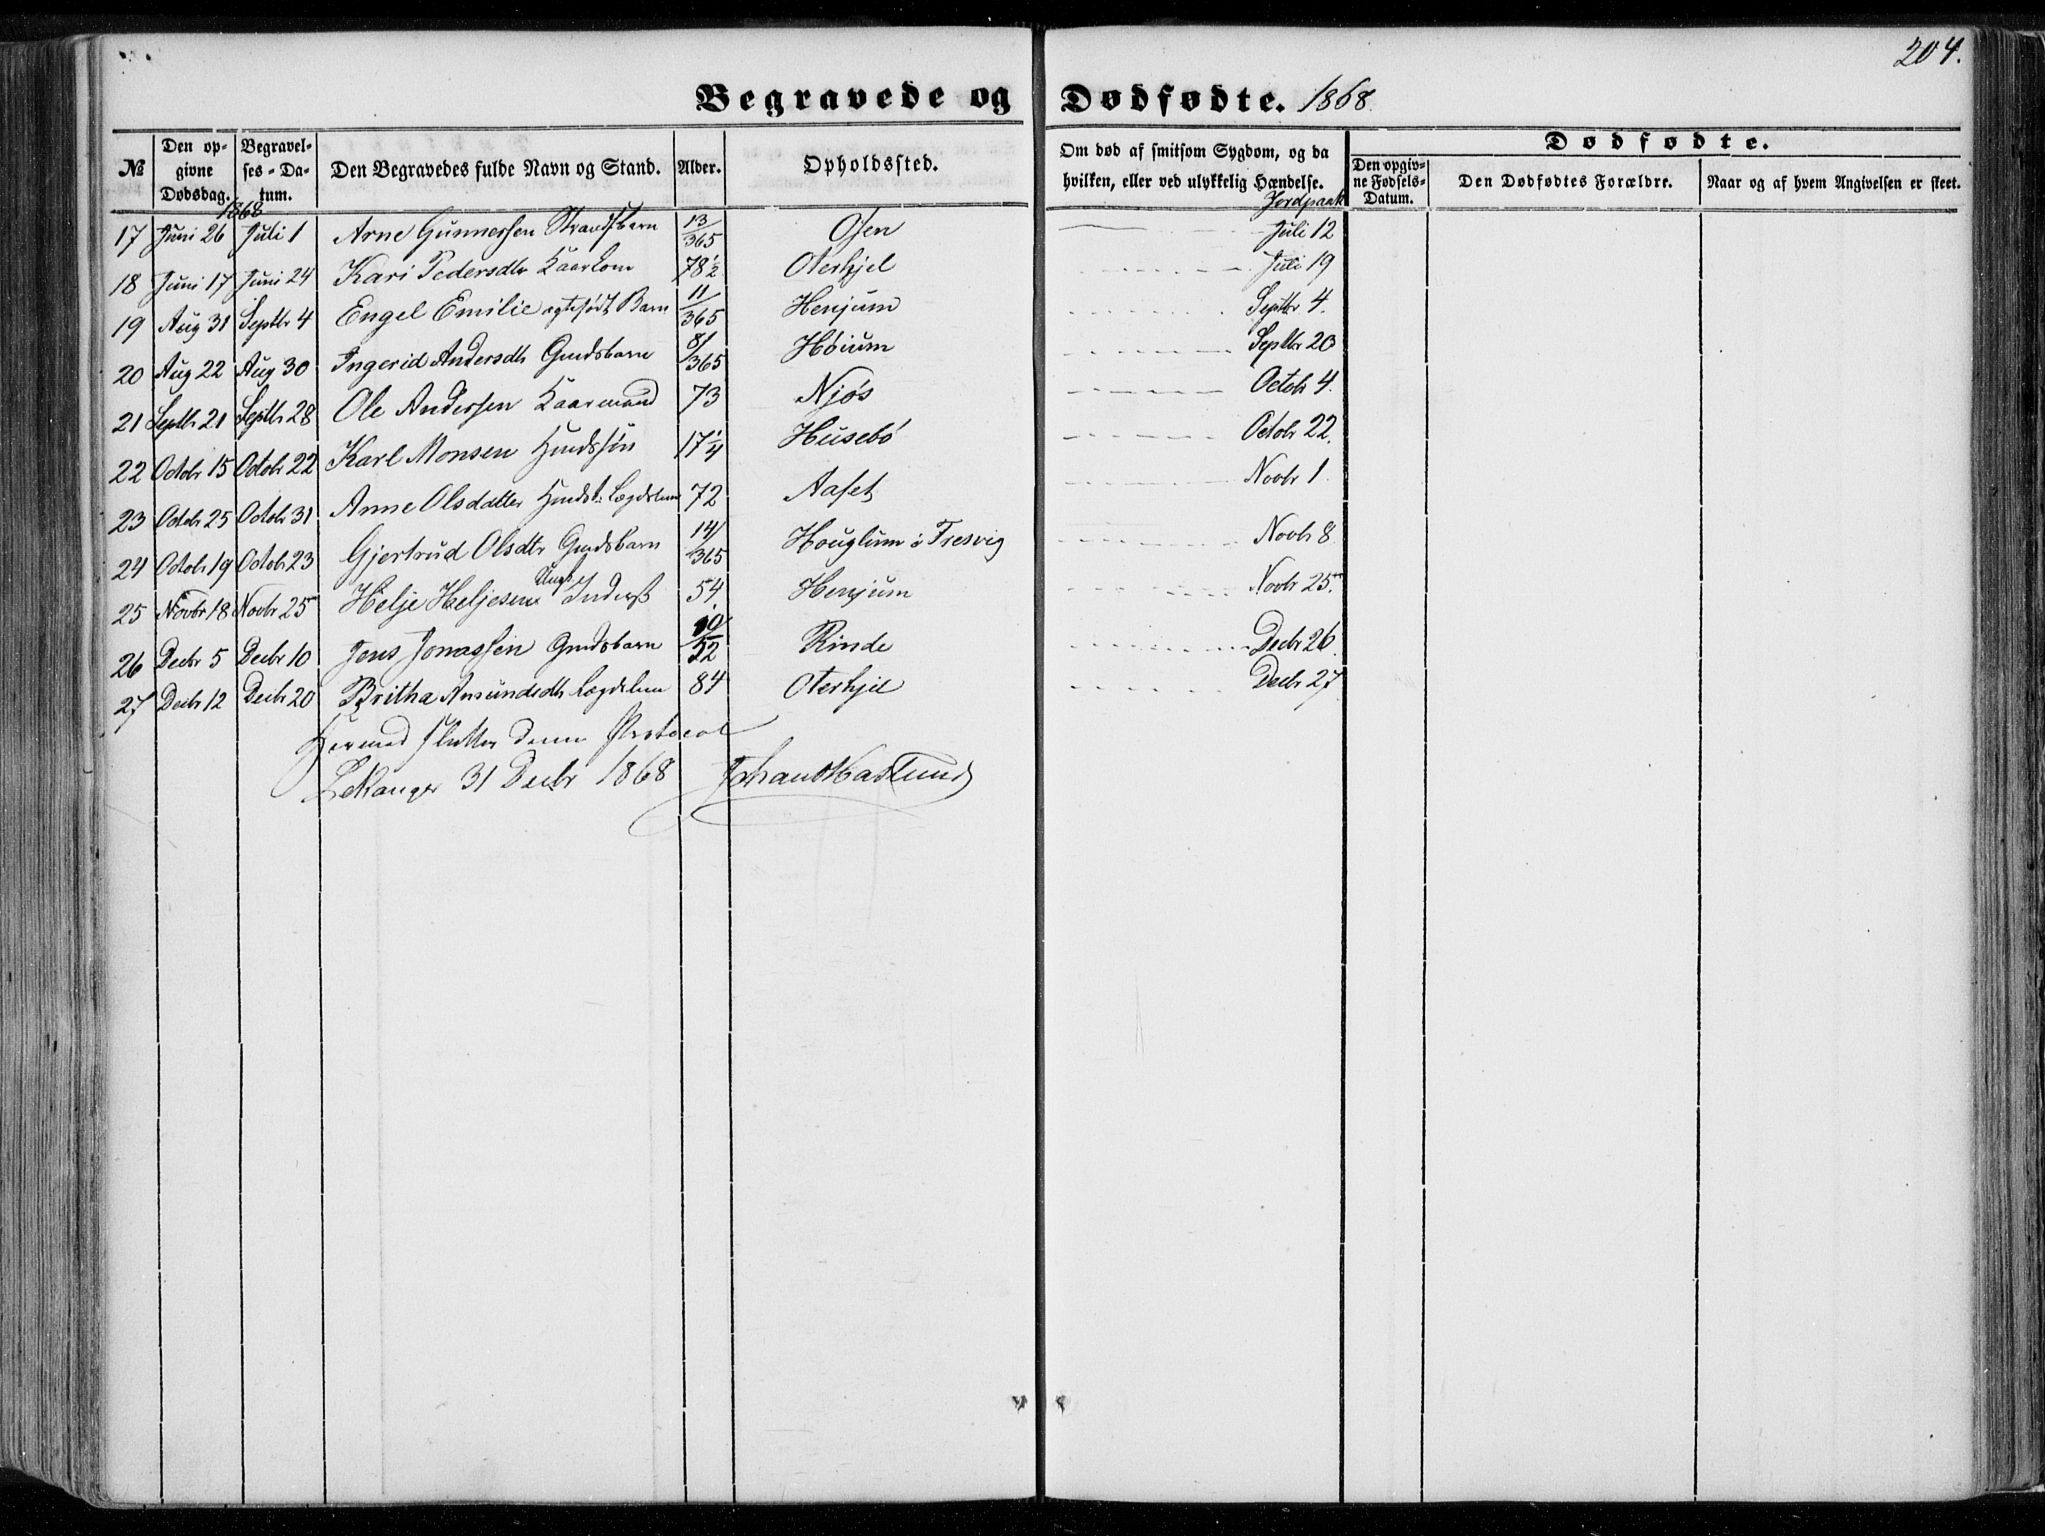 204.
Begravede og Dødfødte. 1868.
№ Den opgivne Dødsdag. Begravelses-Datum. Den Begravedes fulde Navn og Stand. Alder. Opholdssted. Om død af smitsom Sygdom, og da hvilken, eller ved ulykkelig Hændelse. Dødfødte. Den opgivne Fødsels-Datum. Den Dødfødtes Forældre. Naar og af hvem Angivelsen er skeet.
1868 Jordpaak
17 Juni 26 Juli 1 Arne Gunnersen Strandsbarn 13/365 Osen Juli 12
18 Juni 17 Juni 24 Kari Pedersdtr Kaarkone 78½ Oterhjel Juli 19
19 Aug 31 Septbr 4 Engel Emilie egtefødt Barn 11/365 Henjum Septbr 4.
20 Aug 22 Aug 30 Ingerid Andersdtr Gmdsbarn 8/365 Høium Septbr 20
21 Septbr 21 Septbr 28 Ole Andersen Kaarmand 73 Njøs Octobr 4.
22 Octobr 15 Octobr 22 Karl Monsen Hmdssøn 17¼ Husebø Octobr 22.
23 Octobr 25 Octobr 31 Anne Olsdatter Lægdslem 72 Aafet Novbr 1
24 Octobr 19 Octobr 23 Gjertrud Olsdtr Gmdsbarn 14/365 Houglum i Fresvig Novbr 8
25 Novbr 18 Novbr 25 Helje Heljesen Ungk Inderst 54 Henjum Novbr 25.
26 Decbr 5 Decbr 10 Jens Jonassen Gmdsbarn 10/52 Rinde Decbr 26
27 Decbr 12 Decbr 20 Britha Amundsdtr Lægdslem 84 Oterhjel Decbr 27
Hermed slutter denne Protocol
Lekanger 31 Decbr 1868